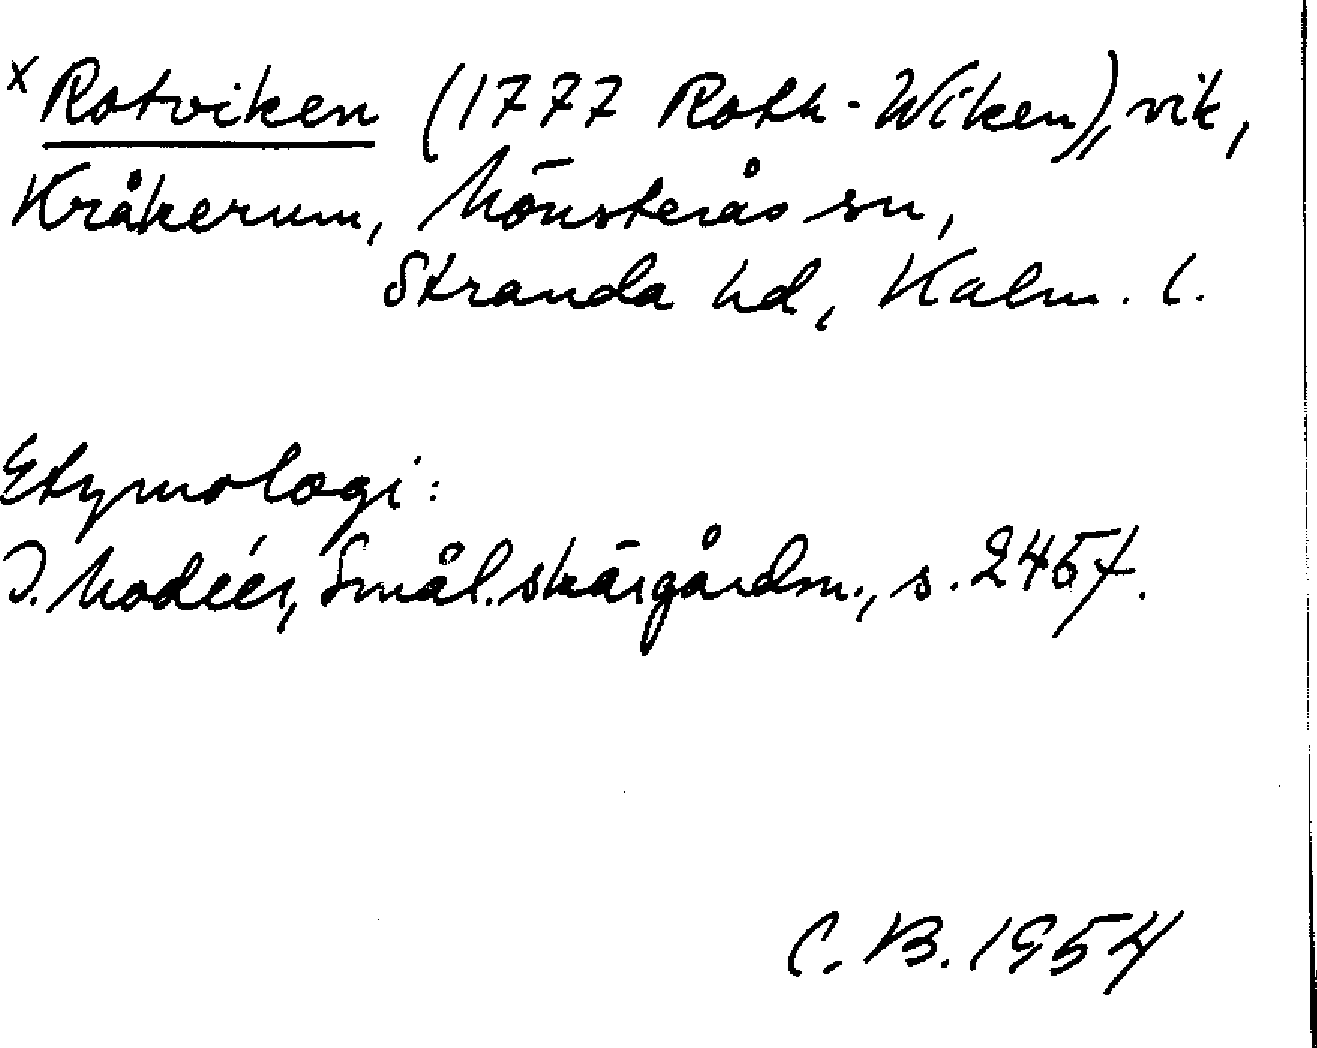 x Rotviken (1777 Roth-Wiken), vik,
Kråkerum, Mönsterås sn,
Stranda hd, Kalm. l.
Etymologi:
I. Modéer, Smål. skärgårdsn., s. 245f.
C. B. 1954